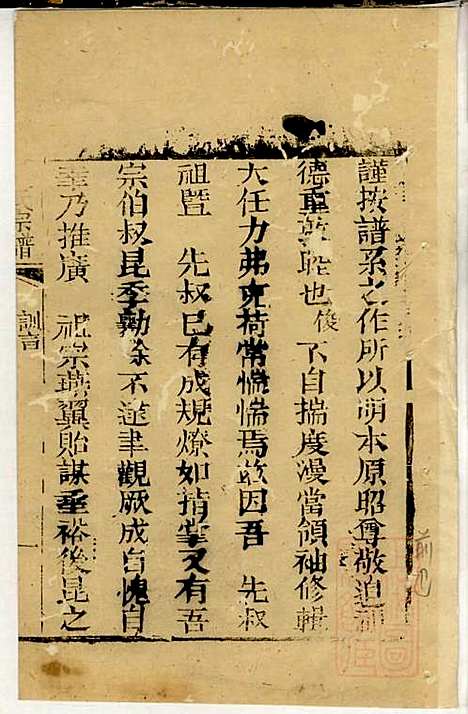 謹按譜系之作所以明本原昭尊敬追
德重敦睦也俊 不自揣度漫當領袖修輯
大任力弗克荷常惴惴焉故因吾 先叔
祖暨 先叔已有成規燎如指掌又有吾
宗伯叔昆季勷余不逮聿觀厥成自愧自
幸乃推廣 祖宗翊翼貽謀垂裕後昆之
宗譜
訓言
一